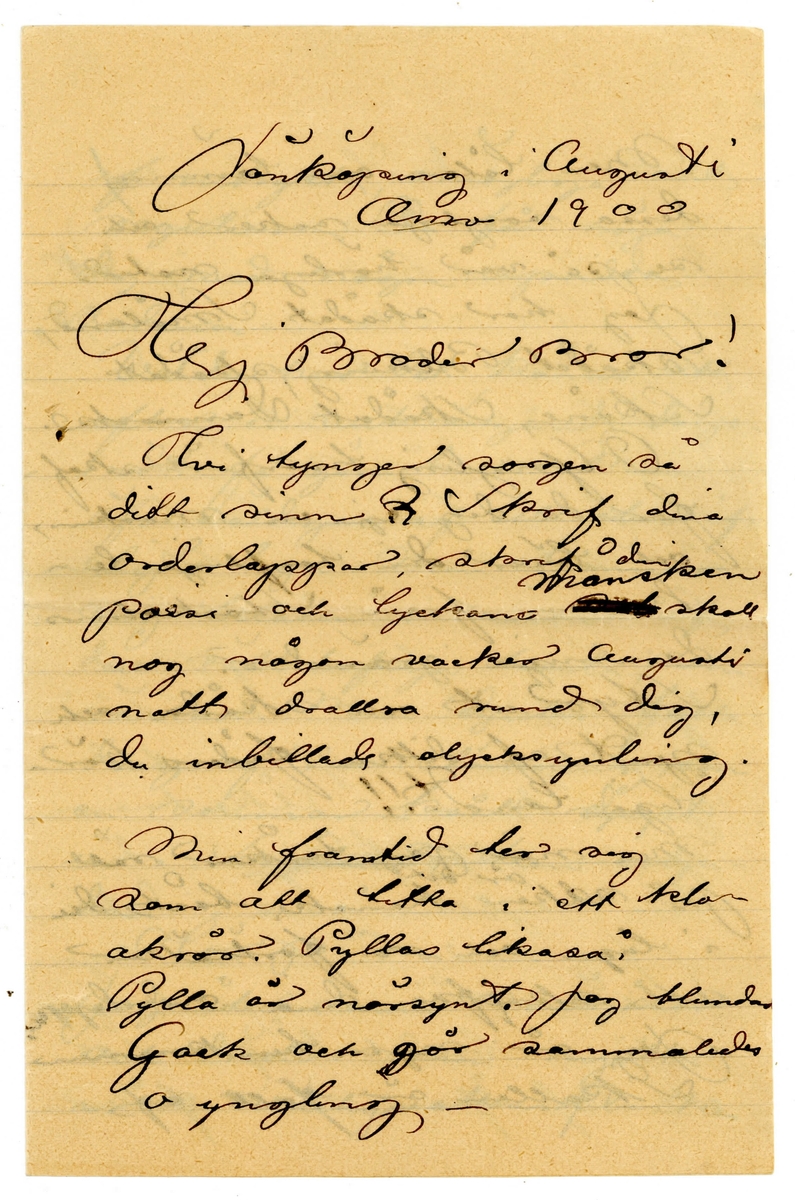 Jönköping i Augusti
Anno 1900
Hej Broder Bror!
Hvi tynger sorgen så
ditt sinn? Skrif dina
orderlappar, skrif din
månsken
poesi och lyckans skall
nog någon vacker Augusti
natt drallra rund dig,
du inbillade olycksynling.
Min framtid ter sig
som att titta i ett klo-
akrör. Pyllas likaså.
Pylla är närsynt. Jag blundar
Gack och gör sammaledes
o yngling –